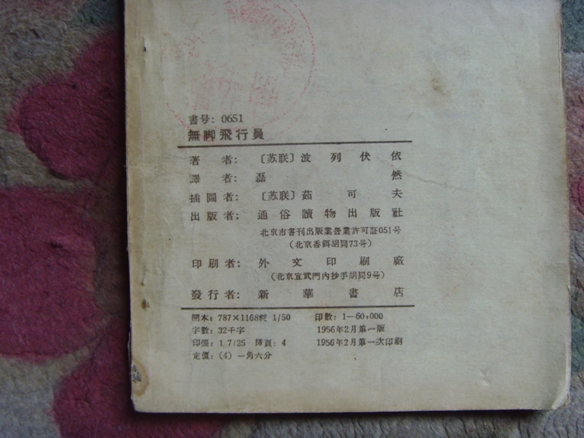 書号: 0651
無脚飛行員
著者: 〔苏联〕波列伏依
譯者: 磊然
插圖者: 〔苏联〕茹可夫
出版者: 通俗讀物出版社
北京市書刊出版業营業許可証051号
(北京香餌胡同73号)
印刷者: 外文印刷廠
(北京宣武門內抄手胡同9号)
發行者: 新華書店
開本: 787×1168粍 1/50 印数: 1—60,000
字数: 32千字 1956年2月第一版
印張: 1 7/25 揷頁: 4 1956年2月第一次印刷
定價: (4) 一角六分